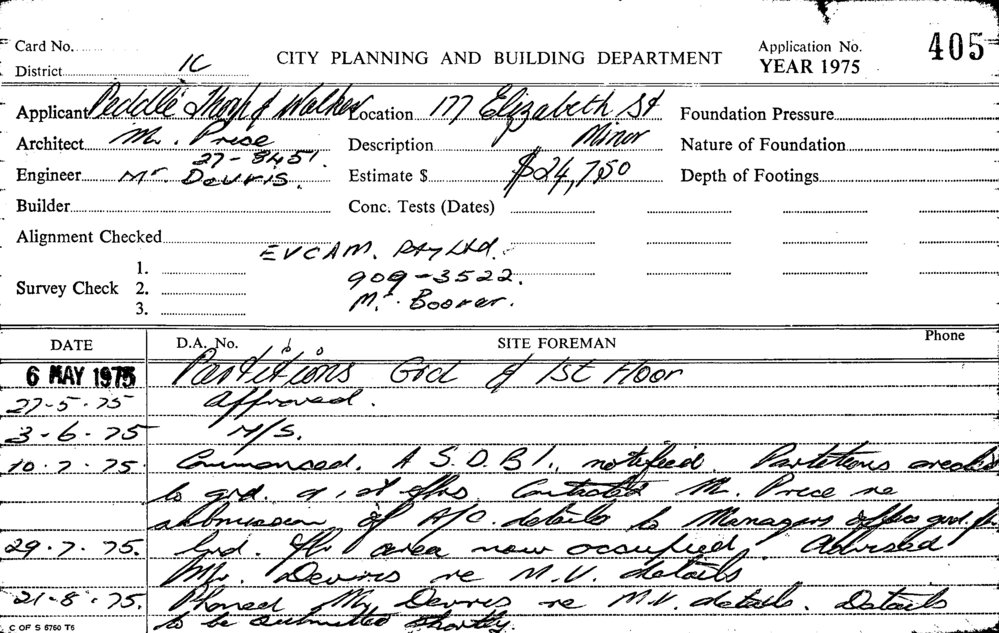 Card No.
District 1C
CITY PLANNING AND BUILDING DEPARTMENT
Application No. 405
YEAR 1975
Applicant Peddle Thorp & Walker
Location 177 Elizabeth St
Foundation Pressure
Architect Mr. Price
27-8451.
Description Minor
Nature of Foundation
Engineer Mr Devris.
Estimate $ $24,750
Depth of Footings
Builder
Conc. Tests (Dates)
Alignment Checked
EVCAM. Pty Ltd.
Survey Check 1.
2.
3.
909-3522.
Mr. Boorer.
DATE
D.A. No.
SITE FOREMAN
Phone
6 MAY 1975 Partitions Grd & 1st Floor
27-5-75 Approved.
3-6-75 M/S.
10.7.75. Commenced. A.S.D.B.I., notified. Partitions erected
to grd. & 1st flrs. Contacted M. Price re
submission of A/C. details to Managers office grd. flr.
29.7.75. Grd. flr area now occupied. Advised
Mr. Devris re M.V. details
21-8.75. Phoned Mr Devris re M.V. details. Details
to be submitted shortly.
C OF S 5750 T5